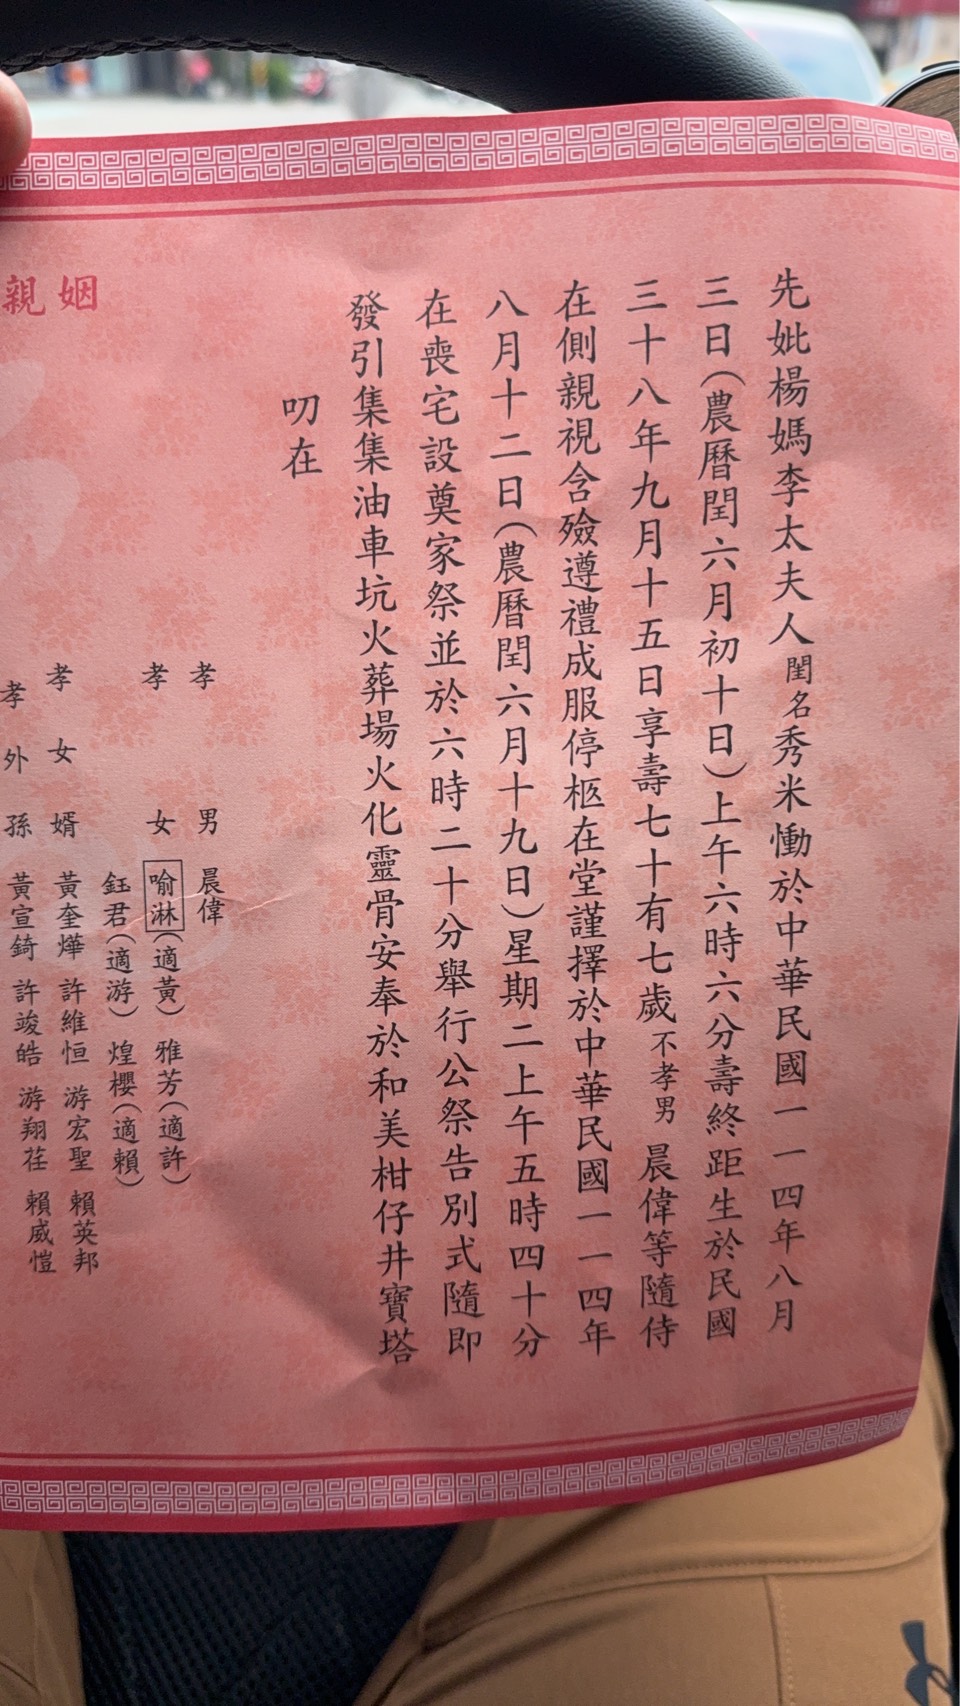 先妣楊媽李太夫人閨名秀米慟於中華民國一一四年八月
三日(農曆閏六月初十日)上午六時六分壽終距生於民國
三十八年九月十五日享壽七十有七歲不孝男晨偉等隨侍
在側親視含殮遵禮成服停柩在堂謹擇於中華民國一一四年
八月十二日(農曆閏六月十九日)星期二上午五時四十分
在喪宅設奠家祭並於六時二十分舉行公祭告別式隨即
發引集集油車坑火葬場火化靈骨安奉於和美柑仔井寶塔
叨在
姻
親
孝男 晨偉
孝女 喻淋(適黃) 雅芳(適許)
鈺君(適游) 煌櫻(適賴)
孝女婿 黃奎燁 許維恒 游宏聖 賴英邦
孝外孫 黃宣錡 許竣皓 游翔荏 賴威愷